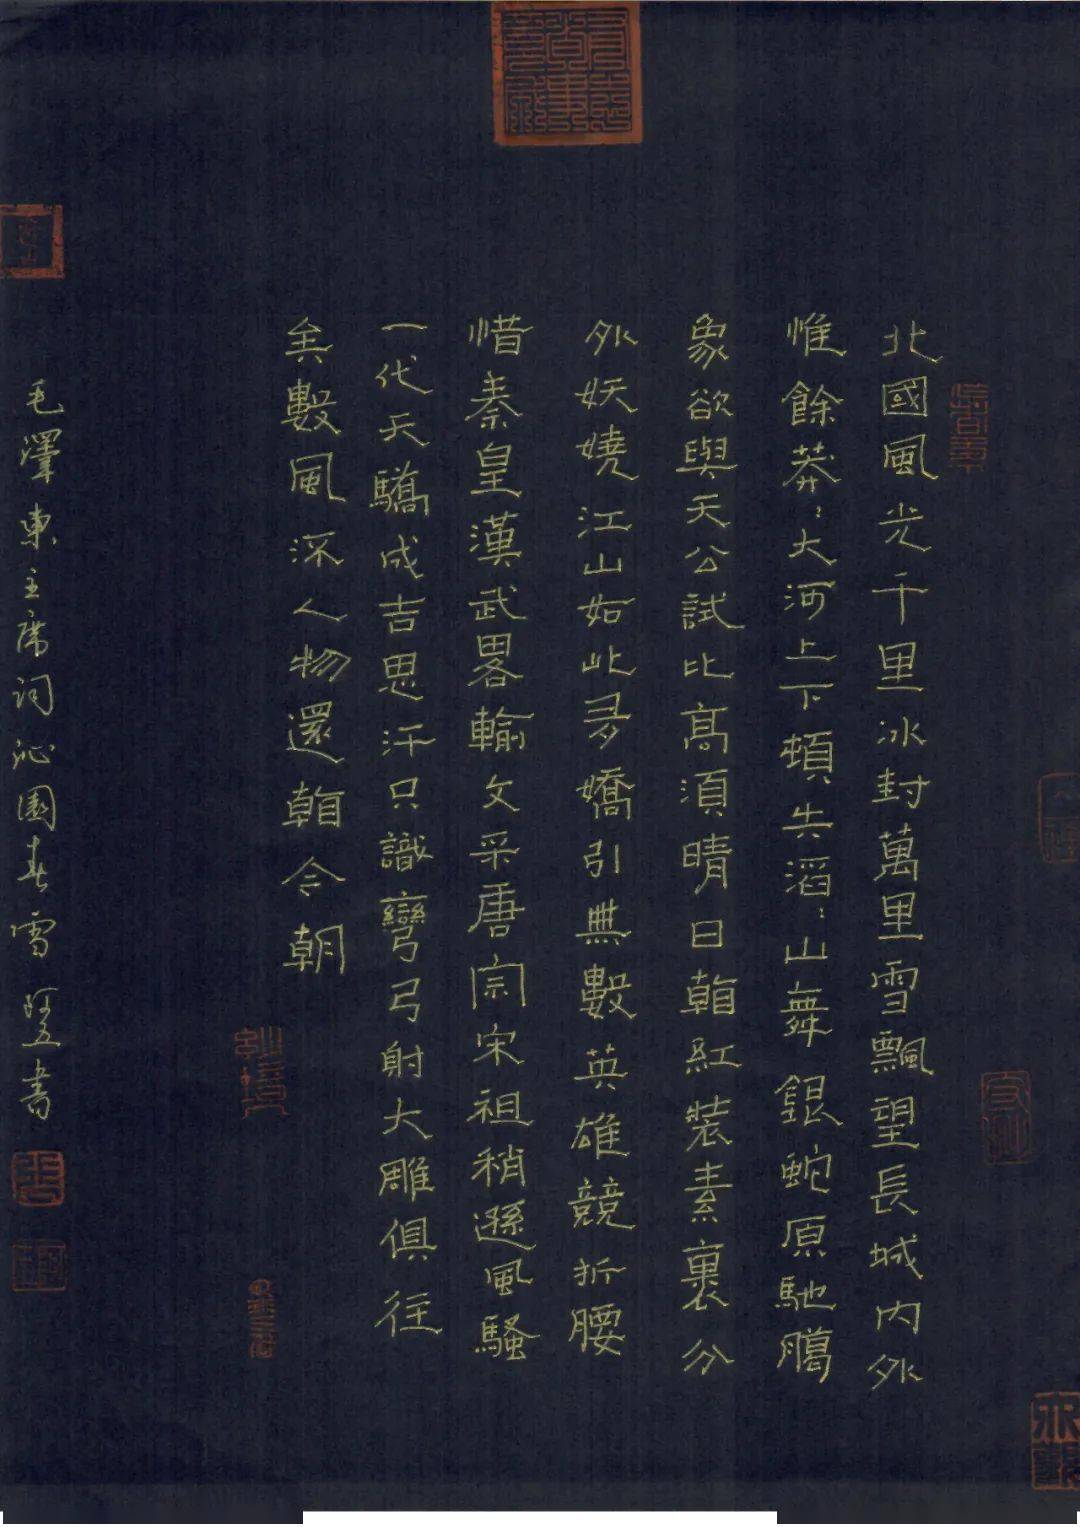 北國風光千里冰封萬里雪飄望長城内外
惟餘莽：大河上下頓失滔：山舞銀蛇原馳臈
象欲與天公試比高須晴日看紅裝素裹分
外妖嬈江山如此多嬌引無數英雄競折腰
惜秦皇漢武畧輸文采唐宗宋祖稍遜風騷
一代天驕成吉思汗只識彎弓射大雕俱往
矣數風流人物還看今朝
毛澤東主席詞沁園春雪 書